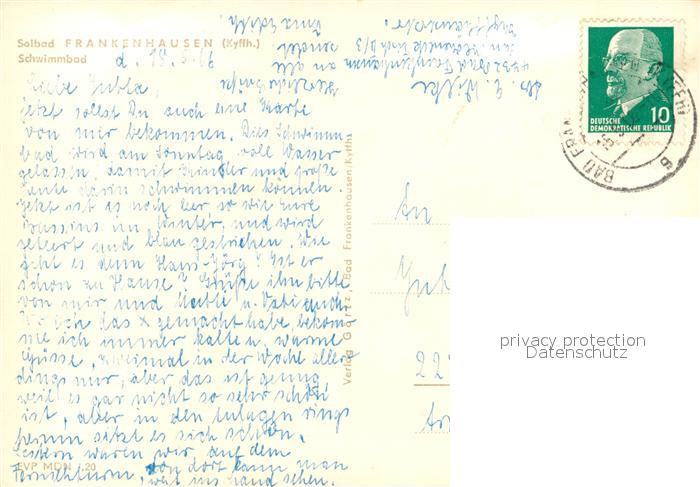 Solbad FRANKENHAUSEN (Kyffh.)
Schwimmbad
d. 18.5.66
Liebe Jutta,
jetzt sollst Du auch eine Karte
von mir bekommen. Dies Schwimm
bad wird am Sonntag voll Wasser
gelassen, damit Kinder und große
Leute darin schwimmen können.
Jetzt ist es noch leer so wie Eure
Bassins im Winter, und wird
geteert und blau gestrichen. Wie
geht es denn Hans-Jörg? Ist er
schon zu Hause? Grüße ihn bitte
von mir und Mutti u. Vati auch.
Wo ich das x gemacht habe, bekom
me ich immer kalten, warme
Güsse, zweimal in der Woche aller
dings nur, aber das ist genug
weil es gar nicht so sehr schön
ist, aber in den Anlagen rings
herum sitzt es sich schön.
Gestern waren wir auf dem
Fernsehturm, von dort kann man
weit ins Land sehen.
Herzlichst
an alle
Eure Edith
4732 Bad Frankenhausen
EVP MDN -,20
Verlag Görtz, Bad Frankenhausen/Kyffh.
10
DEUTSCHE
DEMOKRATISCHE REPUBLIK
BAD FRA
An
22
privacy protection
Datenschutz